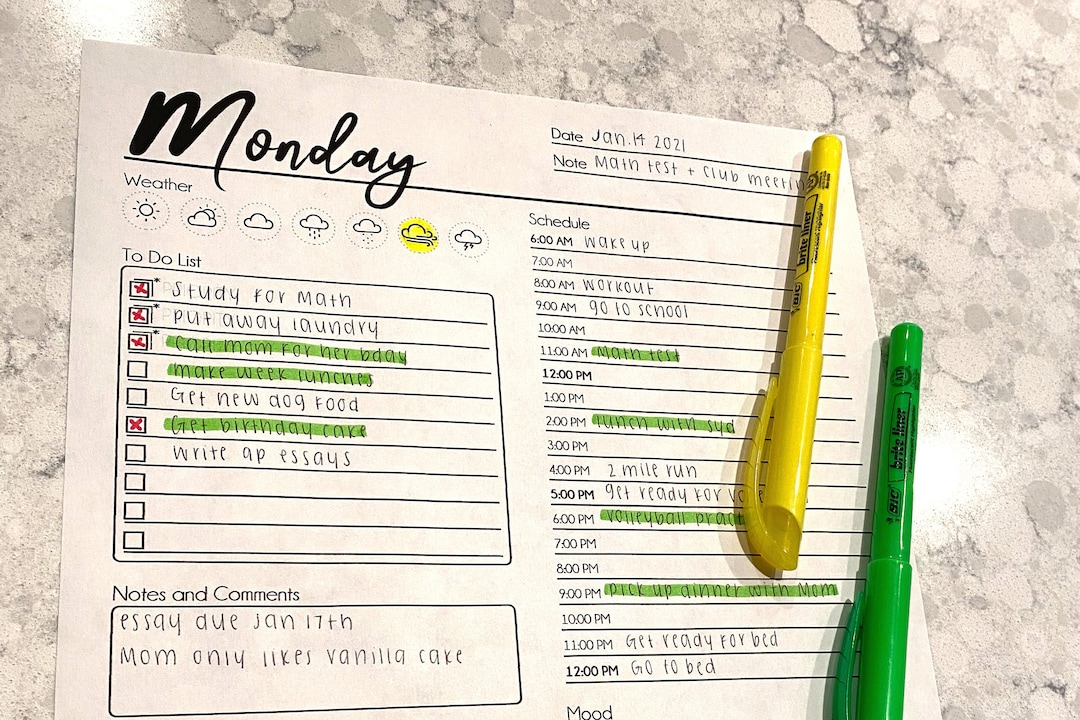 Monday
Date Jan. 14 2021
Note Math test + club meetin
Weather
To Do List
* Study for Math
* put away laundry
* Call mom for her bday
make week lunches
Get new dog food
Get birthday cake
write ap essays
Notes and Comments
essay due Jan 17th
Mom only likes vanilla cake
Schedule
6:00 AM wake up
7:00 AM
8:00 AM workout
9:00 AM go to school
10:00 AM
11:00 AM Math test
12:00 PM
1:00 PM
2:00 PM lunch with syd
3:00 PM
4:00 PM 2 mile run
5:00 PM get ready for vo
6:00 PM volleyball pract
7:00 PM
8:00 PM
9:00 PM pick up dinner with Mom
10:00 PM
11:00 PM Get ready for bed
12:00 PM Go to bed
Mood
BIC brite liner
BIC brite liner